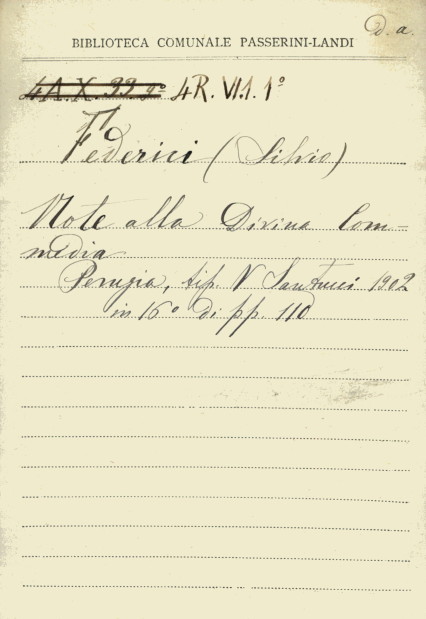 D. a.
BIBLIOTECA COMUNALE PASSERINI-LANDI
4A. X. 33 9º 4R. VI.1. 1º
Federici (Silvio)
Note alla Divina Com-
media
Perugia, tip. V Santucci 1902
in 16º di pp. 110